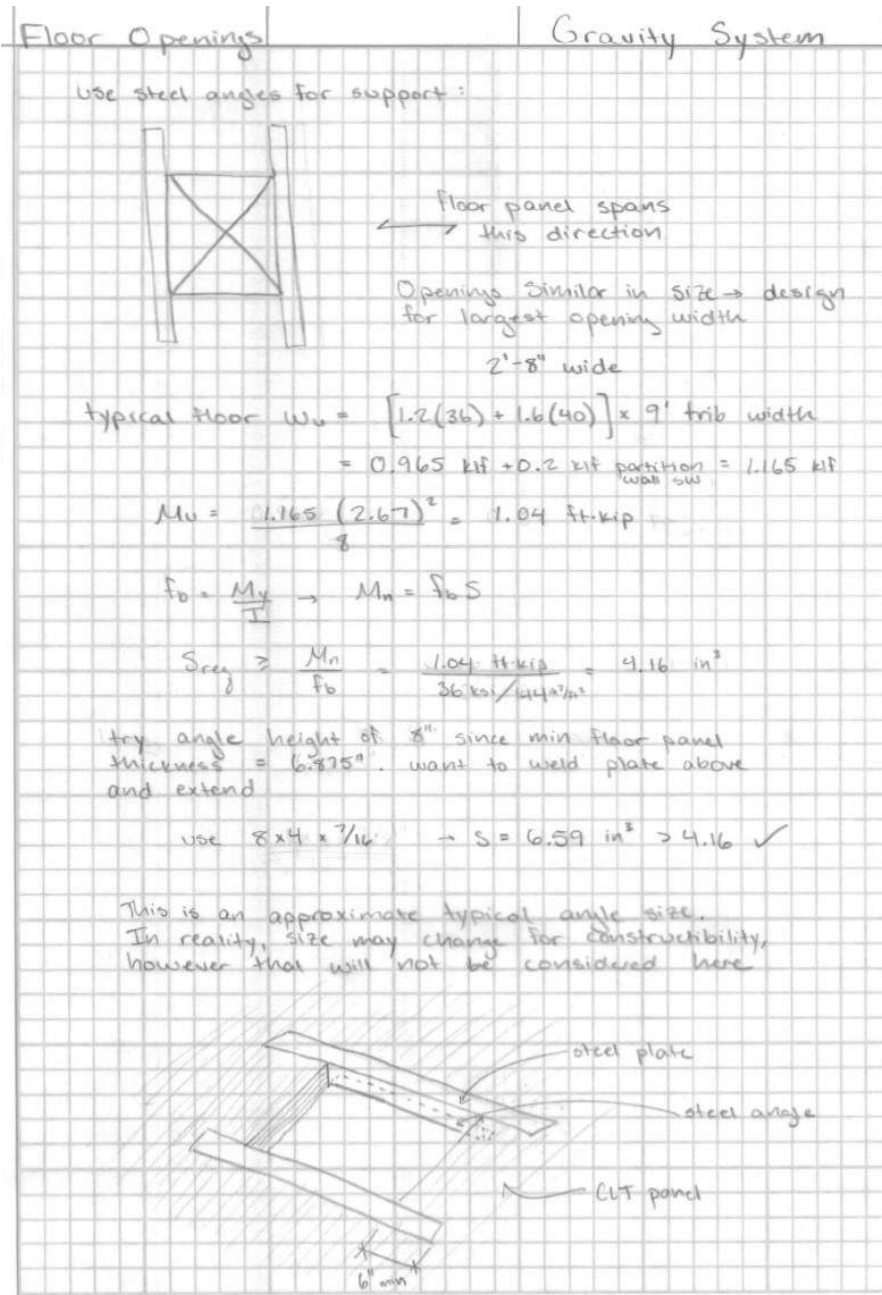 Floor Openings
Gravity System
use steel angles for support:
floor panel spans
this direction
Openings Similar in size → design
for largest opening width
2'-8" wide
typical floor wu = [1.2(36) + 1.6(40)] x 9' trib width
= 0.965 klf + 0.2 klf partition wall SW = 1.165 klf
Mu = 1.165 (2.67)² / 8 = 1.04 ft·kip
fb = My / I → Mn = fb S
Sreq ≥ Mn / fb = 1.04 ft·kip / 36 ksi/144 = 4.16 in³
try angle height of 8" since min floor panel
thickness = 6.875". want to weld plate above
and extend
use 8x4 x 7/16 → S = 6.59 in³ > 4.16 ✓
This is an approximate typical angle size.
In reality, size may change for constructibility,
however that will not be considered here
steel plate
steel angle
CLT panel
6" min